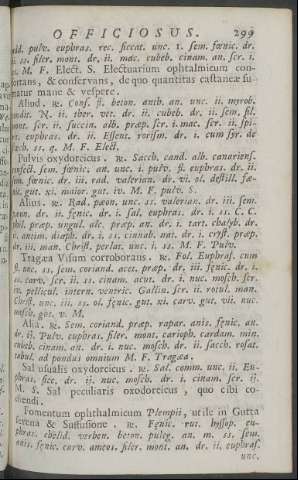 OFFICIOSUS. 299
pulv. euphras. rec. siccat. unc. 1. sem. fœnic. dr.
ii. ss. siler. mont. dr. ii. mac. cubeb. cinam. an. scr. i.
M. F. Elect. S. Electuarium ophtalmicum con-
fortans, & conservans, de quo quantitas castaneæ su-
matur mane & vespere.
Aliud. ℞. Cons. fl. beton. anth. an. unc. ii. myrob.
condit. N. ii. iber. vet. dr. ii. cubeb. dr. ii. sem. sil.
mont. scr. ii. succin. alb. præp. scr. i. mac. scr. ii. spi-
euphras. dr. ii. Essent. rorism. dr. i. cum syr. de
ss. q. M. F. Elect.
Pulvis oxydorcicus. ℞. Sacch. cand. alb. canariens.
sem. fœnic. an. unc. i. pulv. fl. euphras. dr. ii.
fœnic. dr. iii. rad. valerian. dr. vi. ol. destill. fœ-
nic. gut. xi. maior. gut. iv. M. F. pulv. S.
Alius. ℞. Rad. pæon. unc. ss. valerian. dr. iii. sem.
pæon. dr. ii. fœnic. dr. i. sal. euphras. dr. i. ss. C. C.
præp. ungul. alc. præp. an. dr. i. tart. chalyb. dr.
anim. diaph. dr. i. ss. cinnab. nat. dr. i. cryst. præp.
dr. iii. man. Christ. perlat. unc. i. ss. M. F. Pulv.
Tragæa Visum corroborans. ℞. Fol. Euphras. cum
fl. unc. ss. sem. coriand. acet. præp. dr. iii. fœnic. dr. i.
ss. carv. scr. ii. ss. cinam. acut. dr. i. nuc. mosch. scr.
ii. pellicul. intern. ventric. Gallin. scr. ii. rotul. man.
Christ. unc. iii. ss. ol. fœnic. gut. xi. carv. gut. vii. nuc.
mosch. gut. v. M.
Alia. ℞. Sem. coriand. præp. rapar. anis. fœnic. an.
dr. ii. Pulv. euphras. siler. mont. carioph. cardam. min.
cubeb. cinam. an. dr. i. nuc. mosch. dr. ii. sacch. rosat.
tabul. ad pondus omnium M. F. Tragæa.
Sal usualis oxydorcicus. ℞. Sal. comm. unc. ii. Eu-
phras. sicc. dr. ii. nuc. mosch. dr. i. cinam. scr. ii.
M. S. Sal peculiaris oxodorcicus, quo cibi co-
mendi.
Fomentum ophthalmicum Plempii, utile in Gutta
serena & Suffusione. ℞. Fœnic. rut. hyssop. eu-
phras. chelid. verben. beton. puleg. an. m. ss. sem.
anis. fœnic. carv. ameos. siler. mont. an. dr. ii. euphras.
unc.